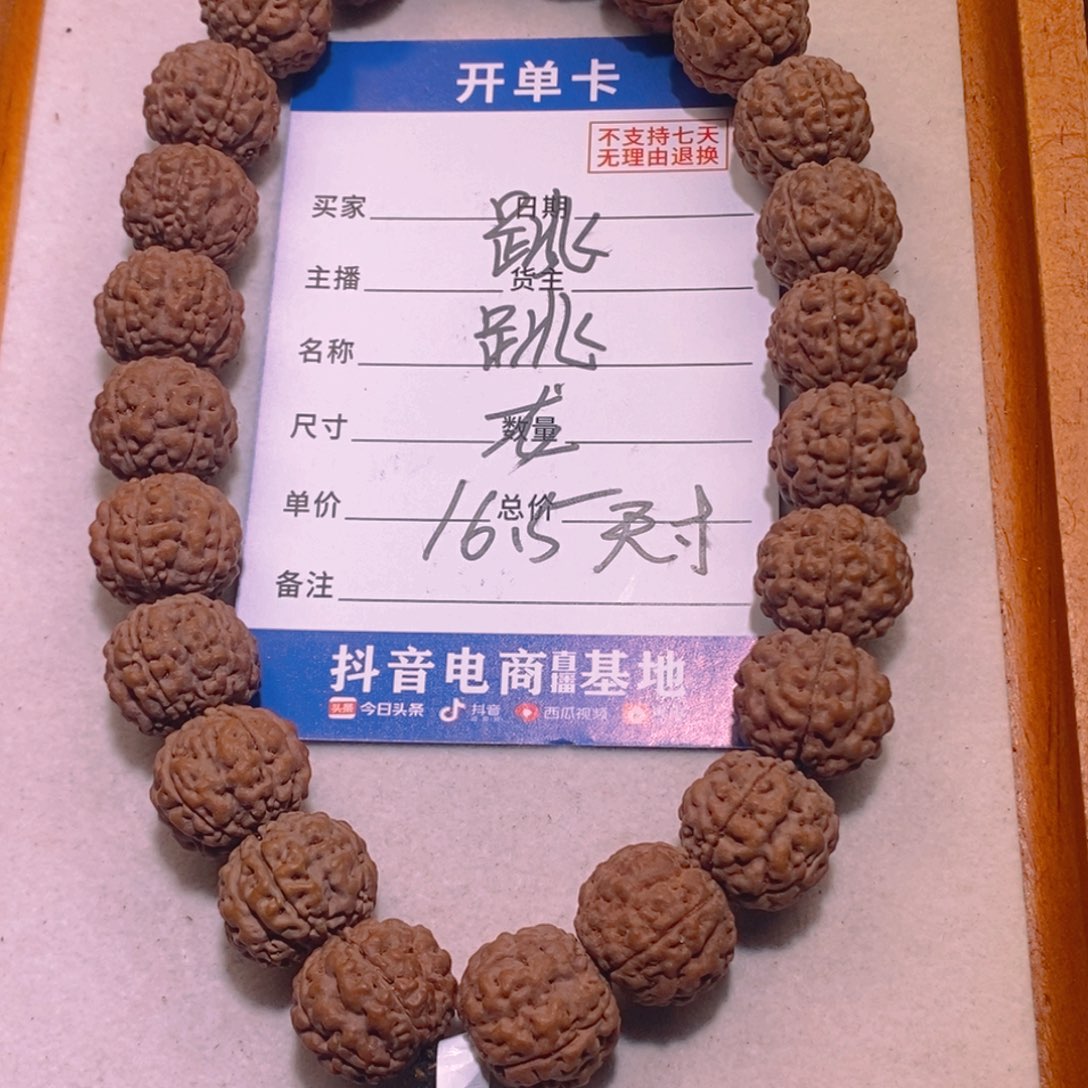 开单卡
不支持七天
无理由退换
买家 日期
跳
主播 货主
跳
名称
尺寸 数量
龙
单价 总价
16.5尺寸
备注
抖音电商直播基地
头条 今日头条 抖音 西瓜视频